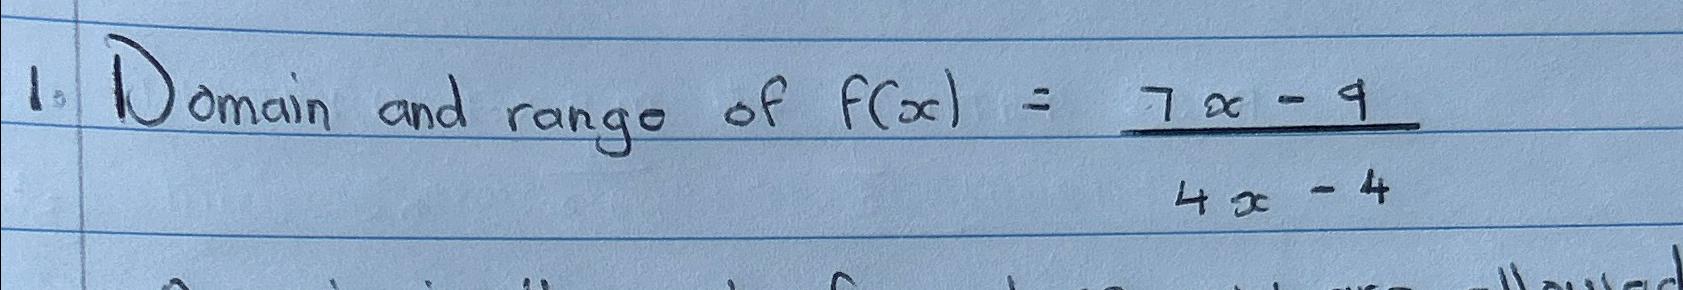 1. Domain and range of f(x) = 7x - 9 / 4x - 4